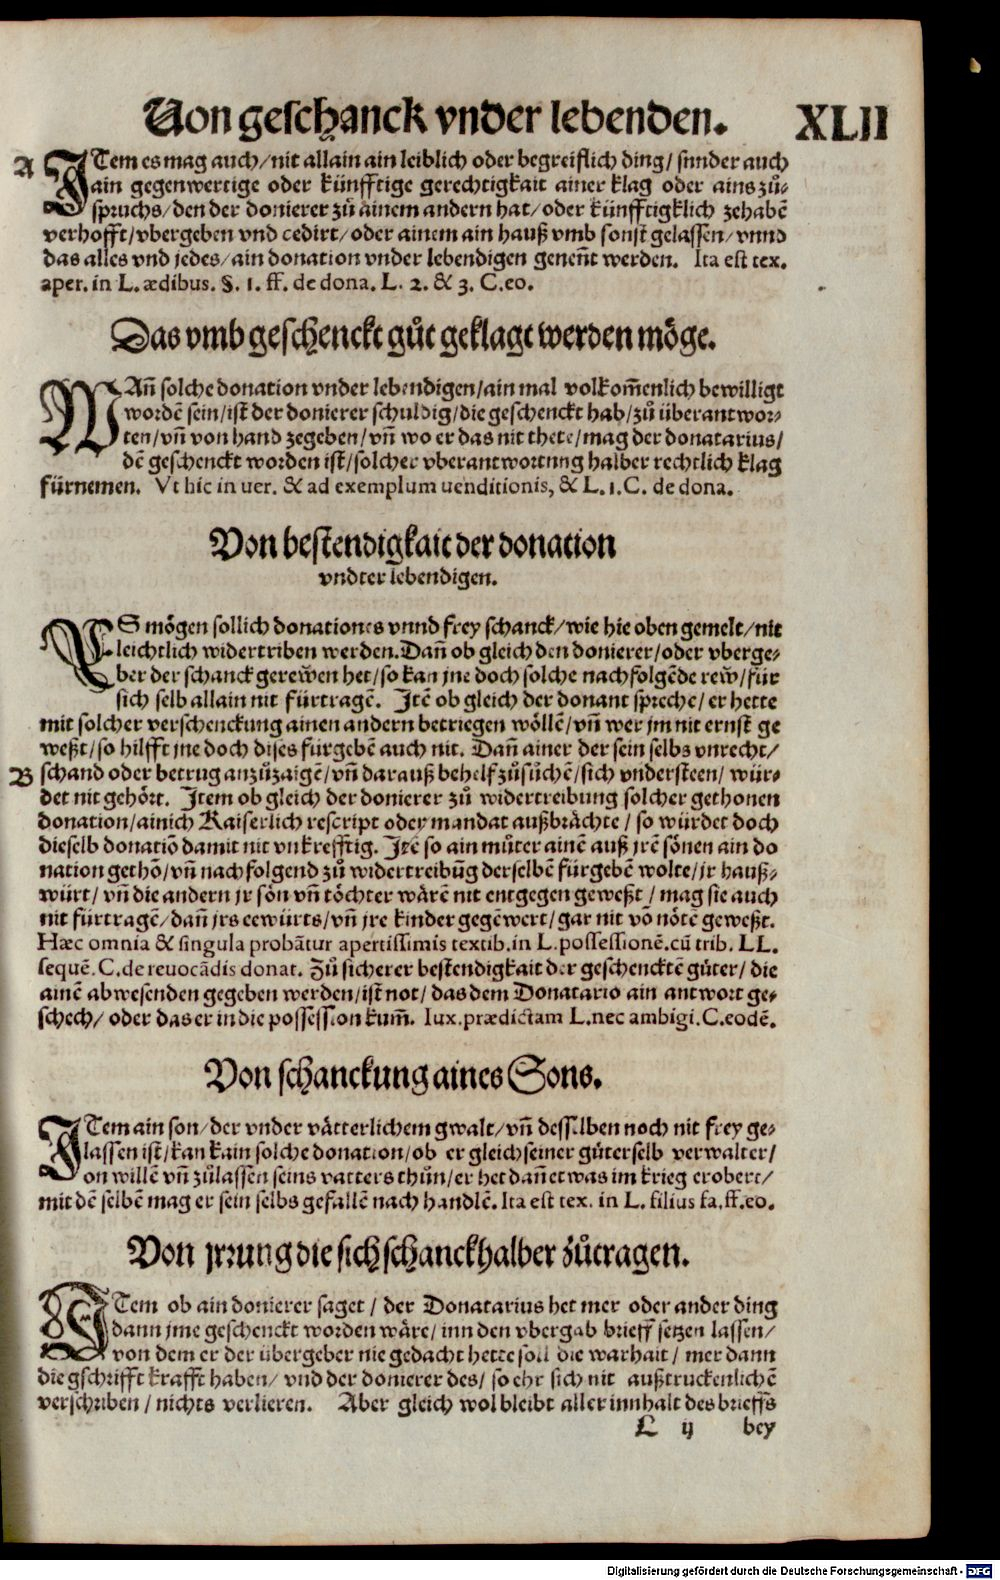 Von geschanck vnder lebenden. XLII
A ITem es mag auch/nit allain ain leiblich oder begreiflich ding/sunder auch
ain gegenwertige oder künfftige gerechtigkait ainer klag oder ains zů-
spruchs/den der donierer zů ainem andern hat/oder künfftigklich zehabē
verhofft/vbergeben vnd cedirt/oder ainem ain hauß vmb sonst gelassen/vnnd
das alles vnd jedes/ain donation vnder lebendigen genen̄t werden. Ita est tex.
aper. in L. ædibus. §. 1. ff. de dona. L. 2. & 3. C. eo.
Das vmb geschenckt gůt geklagt werden möge.
WAn̄ solche donation vnder lebendigen/ain mal volkom̄enlich bewilligt
wordē sein/ist der donierer schuldig/die geschenckt hab/zů überantwor-
ten/vn̄ von hand zegeben/vn̄ wo er das nit thete/mag der donatarius/
dē geschenckt worden ist/solcher vberantwortung halber rechtlich klag
fürnemen. Vt hic in uer. & ad exemplum uenditionis, & L. 1. C. de dona.
Von bestendigkait der donation
vndter lebendigen.
ES mögen sollich donationes vnnd frey schanck/wie hie oben gemelt/nit
leichtlich widertriben werden. Dan̄ ob gleich den donierer/oder vberge-
ber der schanck gerew̄en het/so kan jne doch solche nachfolgēde rew̄/für
sich selb allain nit fürtragē. Itē ob gleich der donant spreche/er hette
mit solcher verschenckung ainen andern betriegen wöllē/vn̄ wer jm nit ernst ge
weßt/so hilfft jne doch dises fürgebē auch nit. Dan̄ ainer der sein selbs vnrecht/
B schand oder betrug anzůzaigē/vn̄ darauß behelf zůsůchē/sich vndersteen/wür-
det nit gehört. Item ob gleich der donierer zů widertreibung solcher gethonen
donation/ainich Kaiserlich rescript odey mandat außbrächte/so würdet doch
dieselb donatiō damit nit vnkrefftig. Itē so ain můter ainē auß jrē sönen ain do
nation gethō/vn̄ nachfolgend zů widertreibūg derselbē fürgebē wolte/jr hauß-
würt/vn̄ die andern jr sön vn̄ töchter wärē nit entgegen geweßt/mag sie auch
nit fürtragē/dan̄ jrs eewürts/vn̄ jre kinder gegēwert/gar nit vō nötē geweßt.
Hæc omnia & singula probātur apertissimis textib. in L. possessionē. cū trib. LL.
sequē. C. de reuocādis donat. Zů sicherer bestendigkait der geschencktē güter/die
ainē abwesenden gegeben werden/ist not/das dem Donatario ain antwort ge-
schech/oder das er in die possession kum̄. Iux. prædictam L. nec ambigi. C. eodē.
Von schanckung aines Sons.
ITem ain son/der vnder vätterlichem gwalt/vn̄ desselben noch nit frey ge-
lassen ist/kan kain solche donation/ob er gleich seiner güter selb verwalter/
on willē vn̄ zůlassen seins vatters thůn/er het dan̄ etwas im krieg erobert/
mit dē selbē mag er sein selbs gefallē nach handlē. Ita est tex. in L. filius fa. ff. eo.
Von jrrung die sich schanckhalber zůtragen.
ITem ob ain donierer saget/der Donatarius het mer oder ander ding
dann jme geschenckt worden wäre/inn den vbergab brieff setzen lassen/
von dem er der übergeber nie gedacht hette soll die warhait/mer dann
die gschrifft krafft haben/vnd der donierer des/so ehr sich nit außtruckenlichē
verschriben/nichts verlieren. Aber gleich wol bleibt aller innhalt des brieffs
L ij bey
Digitalisierung gefördert durch die Deutsche Forschungsgemeinschaft - DFG